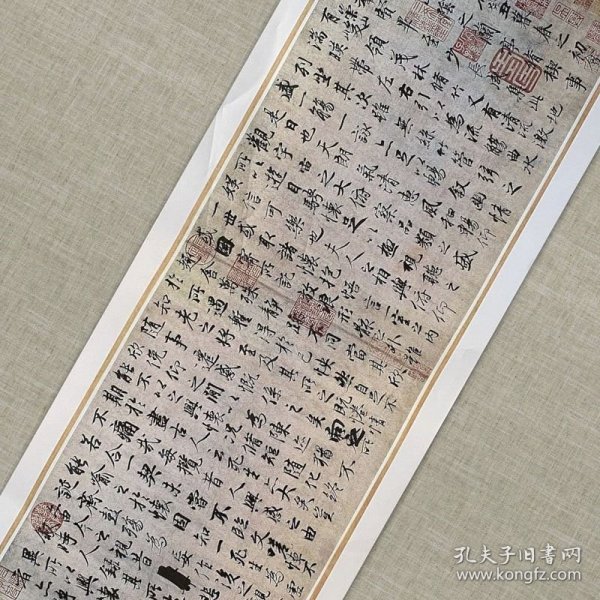 丑暮春之初
之蘭亭脩禊事
畢至少長咸集此地
有崇山峻領茂林脩竹又有清流激
湍暎帶左右引以為流觴曲水
列坐其次雖無絲竹管弦之
盛一觴一詠亦足以暢敘幽情
是日也天朗氣清惠風和暢仰
觀宇宙之大俯察品類之盛
所以遊目騁懷足以極視聽之
娛信可樂也夫人之相與俯仰
一世或取諸懷抱悟言一室之內
或因寄所託放浪形骸之外雖
趣舍萬殊靜躁不同當其欣
於所遇蹔得於己怏然自足不
知老之將至及其所之既惓情
隨事遷感慨係之矣向之所
欣俛仰之間以為陳迹猶不
能不以之興懷況脩短隨化終
期於盡古人云死生亦大矣豈
不痛哉每攬昔人興感之由
若合一契未嘗不臨文嗟悼不
能喻之於懷固知一死生為虛
誕齊彭殤為妄作後之視
亦由今之視昔
敘時人錄其所
異所以興懷
者
孔夫子旧书网
www.kongfz.com